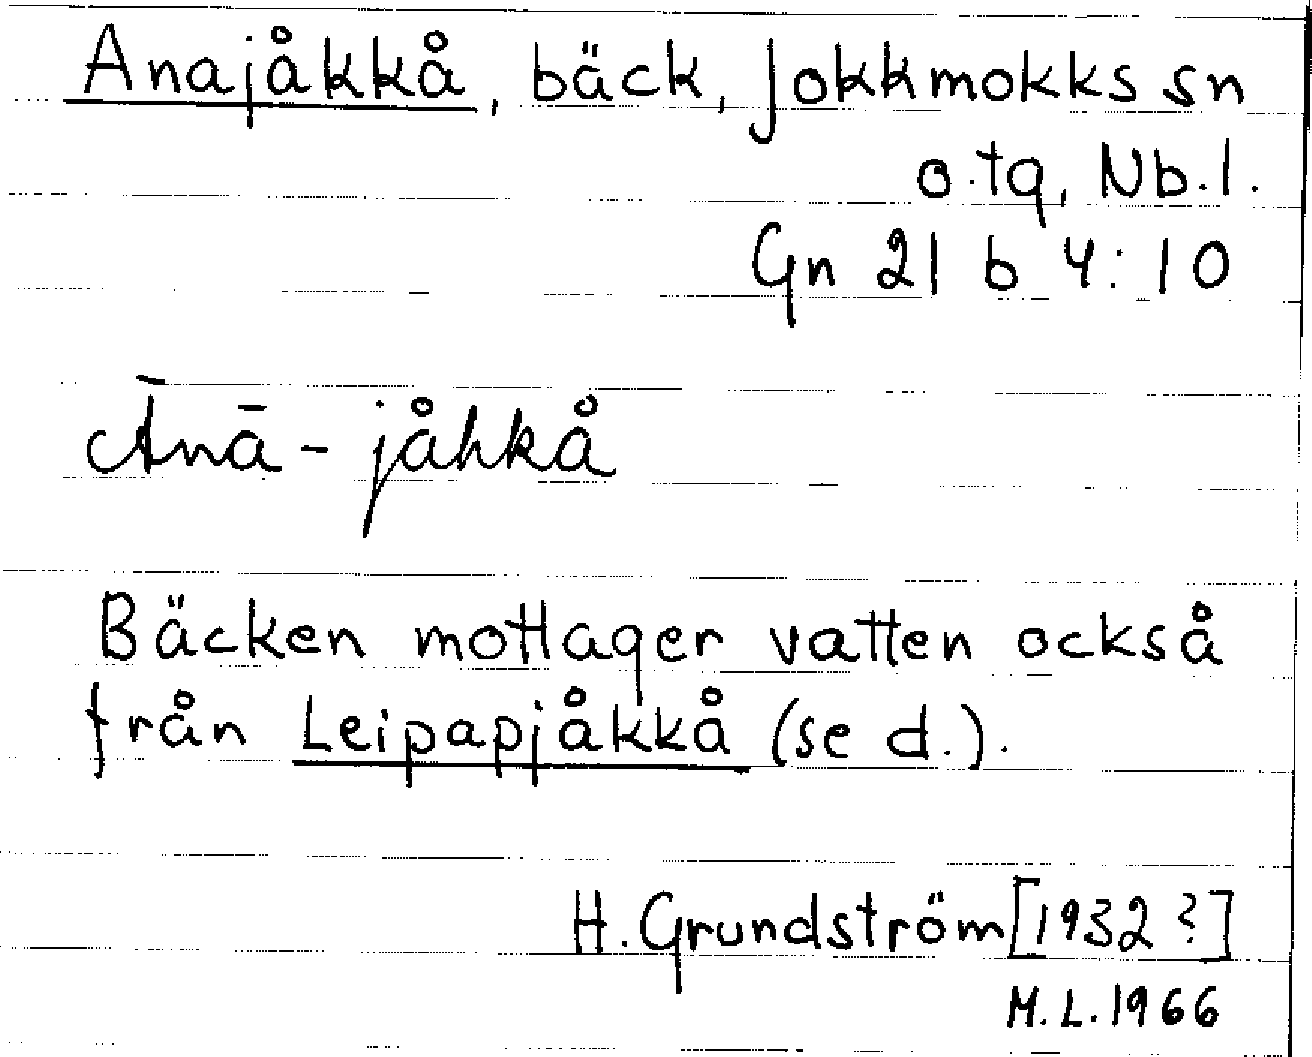 Anajåkkå, bäck, Jokkmokks sn
o. tg, Nb. l.
Gn 21 b 4:10
Ānā-jåhkå
Bäcken mottager vatten också
från Leipapjåkkå (se d.).
H. Grundström [1932?]
M. L. 1966